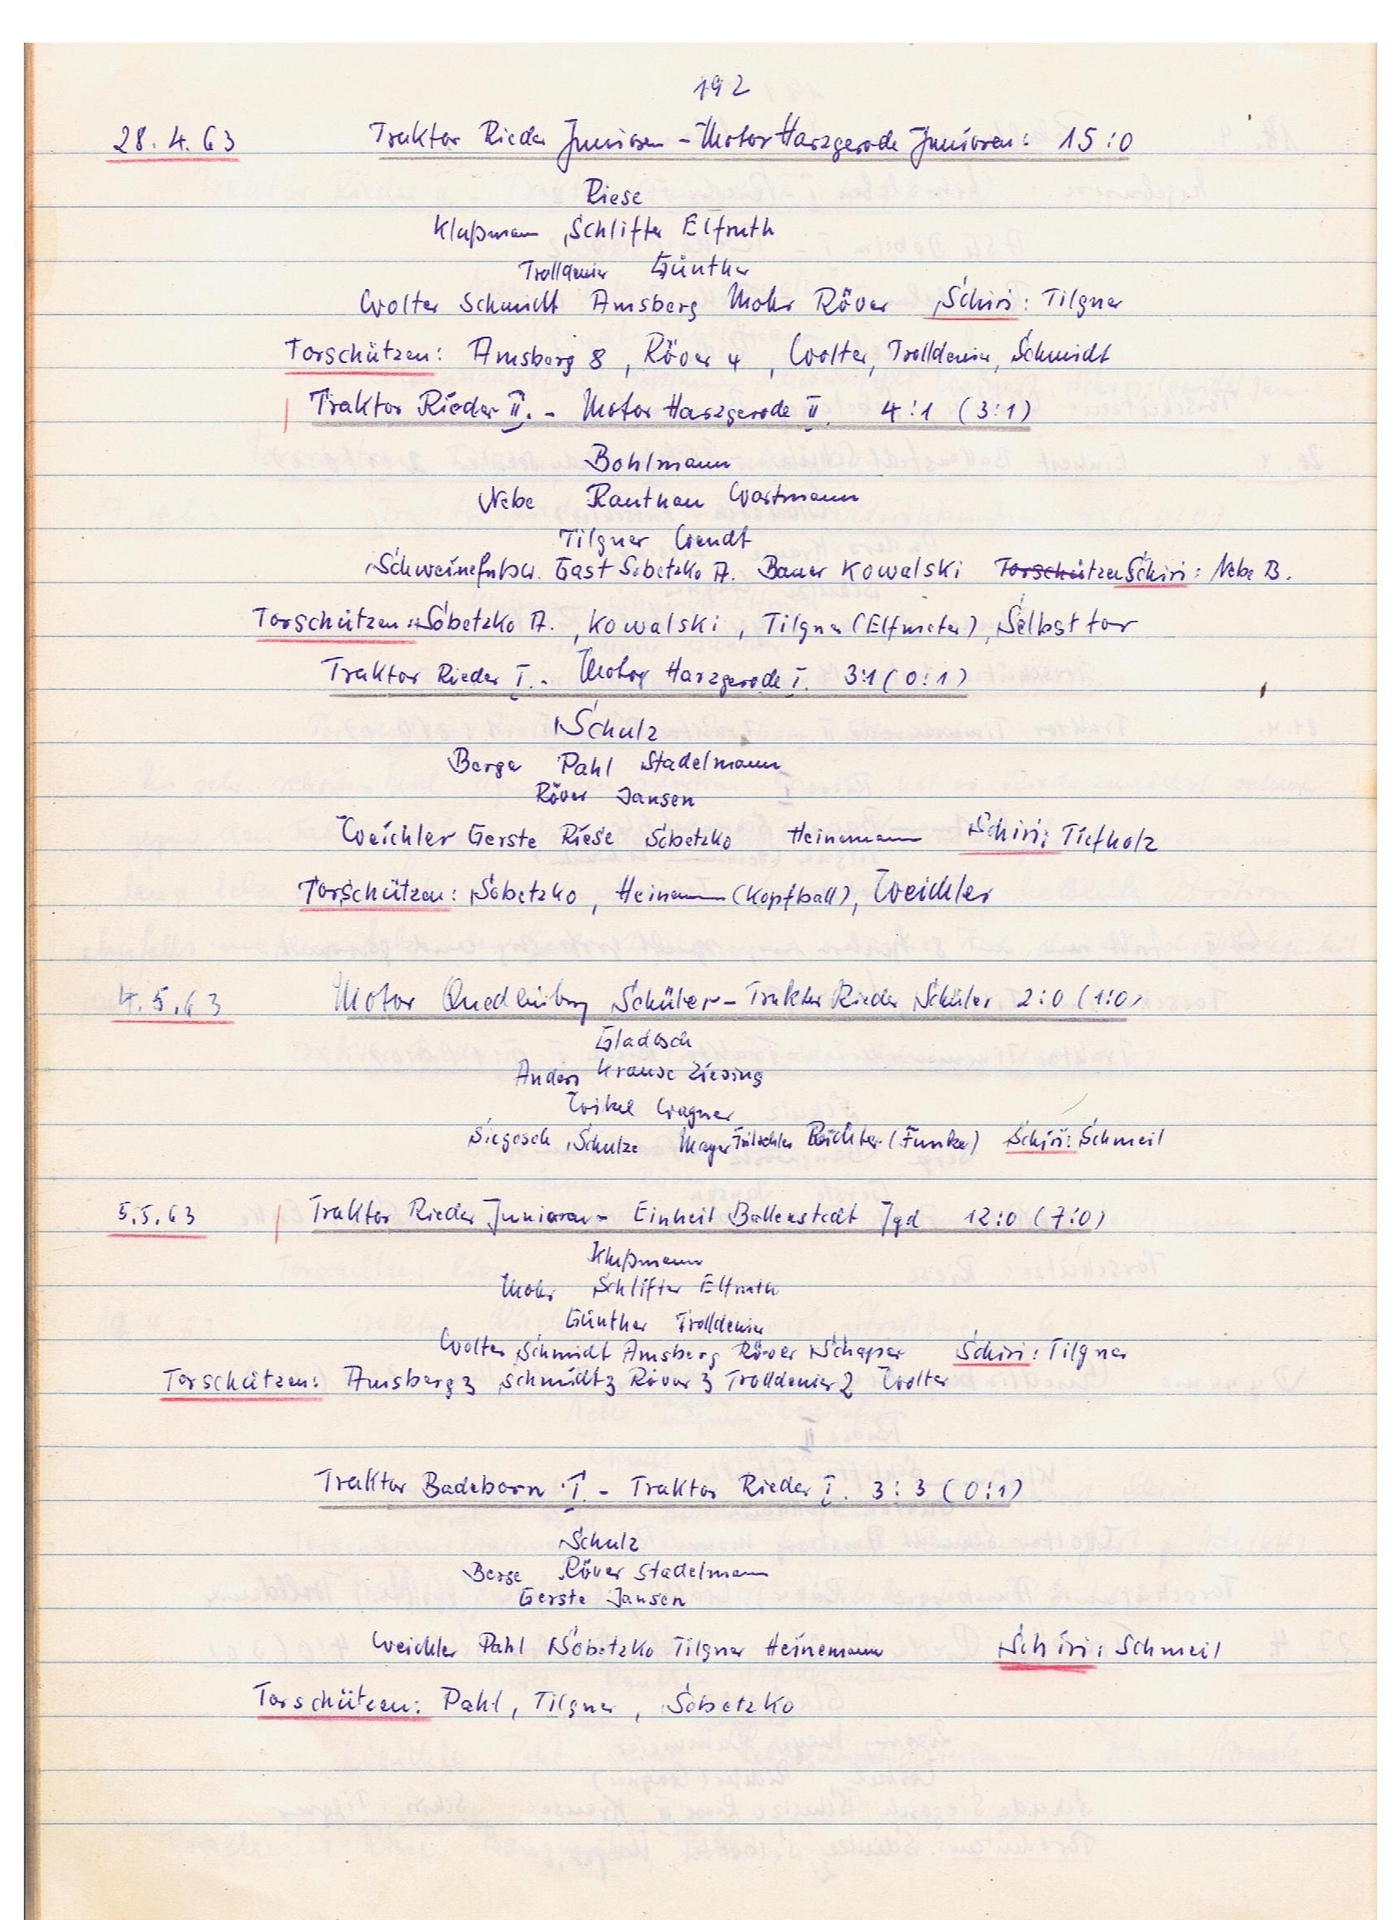 192
28.4.63 Traktor Rieder Junioren - Motor Harzgerode Junioren: 15:0
Riese
Klaßmann Schlifter Elfruth
Trolldenier Günther
Wolter Schmidt Amsberg Mohr Röver Schiri: Tilgner
Torschützen: Amsberg 8, Röver 4, Wolter, Trolldenier, Schmidt
Traktor Rieder II. - Motor Harzgerode II. 4:1 (3:1)
Bohlmann
Nebe Rauthau Wartmann
Tilgner Wendt
Gast Sobetzko A. Bauer Kowalski Torschützen Schiri: Nebe B.
Torschützen: Sobetzko A., Kowalski, Tilgner (Elfmeter), Selbsttor
Traktor Rieder I. - Motor Harzgerode I. 3:1 (0:1)
Schulz
Berge Pahl Stadelmann
Röver Jansen
Weichler Gerste Riese Sobetzko Heinemann Schiri: Tiefholz
Torschützen: Sobetzko, Heinemann (Kopfball), Weichler
4.5.63 Motor Quedlinburg Schüler - Traktor Rieder Schüler 2:0 (1:0)
Gladosch
Anders Krause Ziesing
Wikel Wagner
Siegosch Schulze Mayer Richter (Funke) Schiri: Schmeil
5.5.63 Traktor Rieder Junioren - Einheit Ballenstedt Jgd 12:0 (7:0)
Klaßmann
Mohr Schlifter Elfruth
Günther Trolldenier
Wolter Schmidt Amsberg Röver Schaper Schiri: Tilgner
Torschützen: Amsberg 3 Schmidt 3 Röver 3 Trolldenier 2 Wolter
Traktor Badeborn I. - Traktor Rieder I. 3:3 (0:1)
Schulz
Berge Röver Stadelmann
Gerste Jansen
Weichler Pahl Sobetzko Tilgner Heinemann Schiri: Schmeil
Torschützen: Pahl, Tilgner, Sobetzko